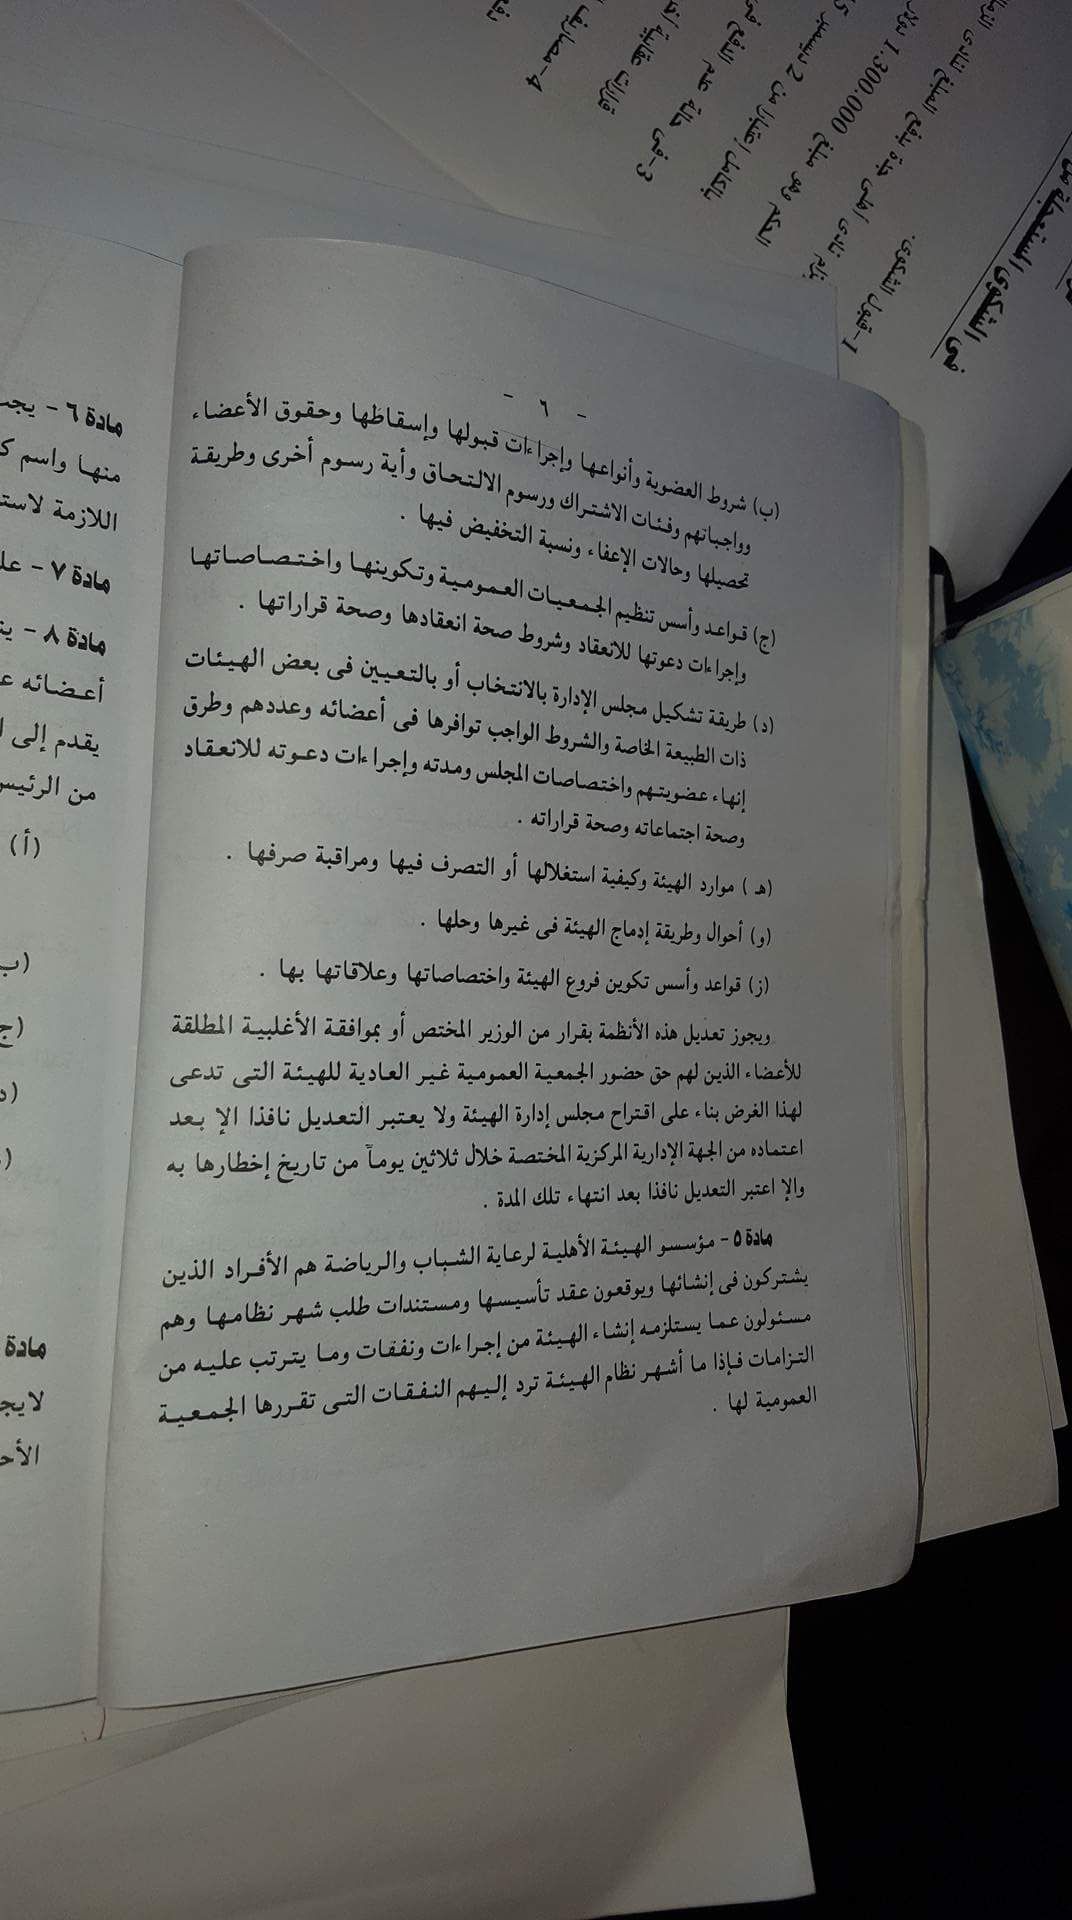 - ٦ -
(ب) شروط العضوية وأنواعها وإجراءات قبولها وإسقاطها وحقوق الأعضاء
وواجباتهم وفئات الاشتراك ورسوم الالتحاق وأية رسوم أخرى وطريقة
تحصيلها وحالات الإعفاء ونسبة التخفيض فيها .
(ج) قواعد وأسس تنظيم الجمعيات العمومية وتكوينها واختصاصاتها
وإجراءات دعوتها للانعقاد وشروط صحة انعقادها وصحة قراراتها .
(د) طريقة تشكيل مجلس الإدارة بالانتخاب أو بالتعيين فى بعض الهيئات
ذات الطبيعة الخاصة والشروط الواجب توافرها فى أعضائه وعددهم وطرق
إنهاء عضويتهم واختصاصات المجلس ومدته وإجراءات دعوته للانعقاد
وصحة اجتماعاته وصحة قراراته .
(هـ) موارد الهيئة وكيفية استغلالها أو التصرف فيها ومراقبة صرفها .
(و) أحوال وطريقة إدماج الهيئة فى غيرها وحلها .
(ز) قواعد وأسس تكوين فروع الهيئة واختصاصاتها وعلاقاتها بها .
ويجوز تعديل هذه الأنظمة بقرار من الوزير المختص أو بموافقة الأغلبية المطلقة
للأعضاء الذين لهم حق حضور الجمعية العمومية غير العادية للهيئة التى تدعى
لهذا الغرض بناء على اقتراح مجلس إدارة الهيئة ولا يعتبر التعديل نافذا الإ بعد
اعتماده من الجهة الإدارية المركزية المختصة خلال ثلاثين يوماً من تاريخ إخطارها به
والإ اعتبر التعديل نافذا بعد انتهاء تلك المدة .
مادة ٥ - مؤسسو الهيئة الأهلية لرعاية الشباب والرياضة هم الأفراد الذين
يشتركون فى إنشائها ويوقعون عقد تأسيسها ومستندات طلب شهر نظامها وهم
مسئولون عما يستلزمه إنشاء الهيئة من إجراءات ونفقات وما يترتب عليه من
التزامات فإذا ما أشهر نظام الهيئة ترد إليهم النفقات التى تقررها الجمعية
العمومية لها .
مادة ٦ - يجب
منها واسم
اللازمة
مادة ٧ -
مادة ٨ -
أعضائه
يقدم إلى
من الرئيس
(أ)
(ب
(ج
(د
مادة
فى الشكوى المستعجلة
1-قبول الشكوى.
الحكم وهو مبلغ 1.300.000
بالكامل إعتبارا من 2 ديسمبر
3-فى حالة عدم الدفع
4-مصاريف